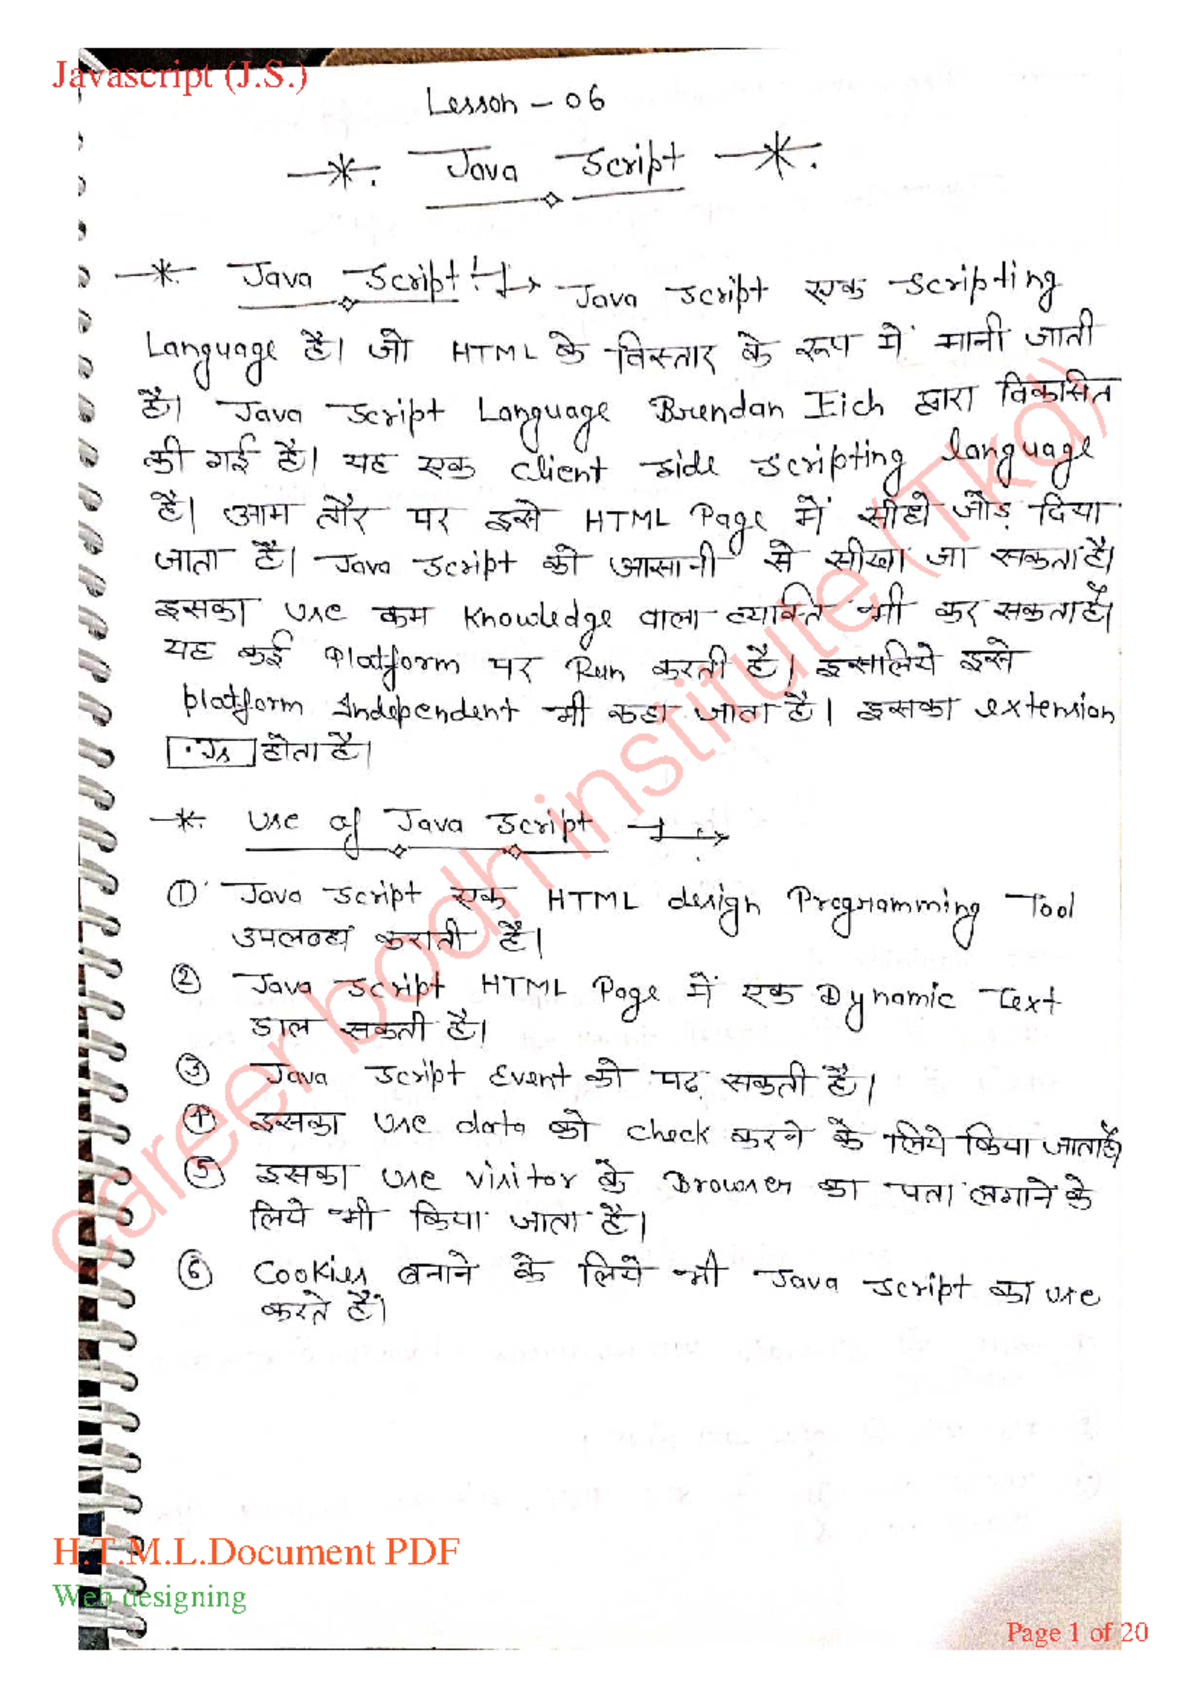 Javascript (J.S.)
Lesson - 06
Java Script
Java Script :- Java Script एक Scripting
Language है। जो HTML के विस्तार के रूप में मानी जाती
है। Java Script Language Brendan Eich द्वारा विकासित
की गई है। यह एक Client Side Scripting language
है। आम तौर पर इसे HTML Page में सीधे जोड़ दिया
जाता है। Java Script को आसानी से सीखा जा सकता है।
इसका use कम Knowledge वाला व्यक्ति भी कर सकता है।
यह कई Platform पर Run करती है। इसलिये इसे
platform Independent भी कहा जाता है। इसका extension
.Js होता है।
Use of Java Script
① Java Script एक HTML design Programming Tool
उपलब्ध कराती है।
② Java Script HTML Page में एक Dynamic Text
डाल सकती है।
③ Java Script Event को पढ़ सकती है।
④ इसका use data को check करने के लिये किया जाता है।
⑤ इसका use visitor के Browser का पता लगाने के
लिये भी किया जाता है।
⑥ Cookies बनाने के लिये भी Java Script का use
करते हैं।
career bodh institute (Tkd)
H.T.M.L.Document PDF
Web designing
Page 1 of 20